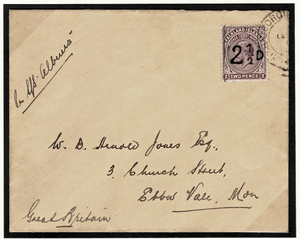 FALKLAND ISLANDS
2½D
TWO PENCE
W. D. Arnold Jones Esq.,
3, Church Street,
Ebbw Vale, Mon
Great Britain